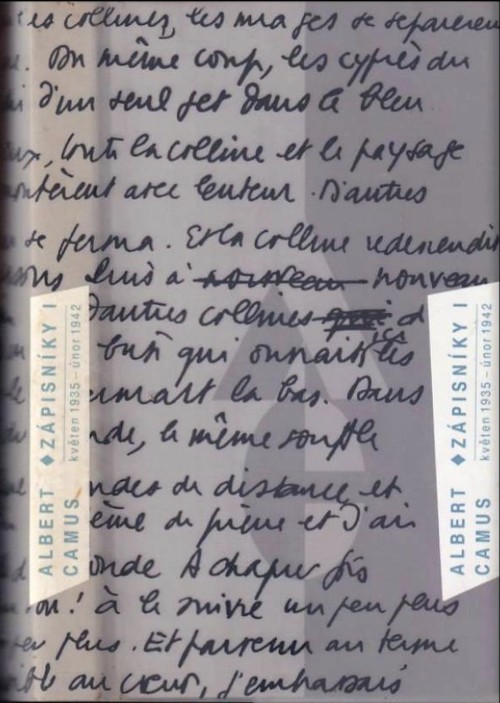 collines, les images se séparèrent
. Du même coup, les cyprès du
d'un seul jet dans le bleu
, toute la colline et le paysage
montèrent avec lenteur. D'autres
se ferma. Et la colline redescendit
à nouveau nouveau
d'autres collines qui d
qui
la bas. Dans
, le même souffle
de distance et
de pierre et d'air
A chaque fois
! à le suivre un peu plus
plus. Et parvenu au terme
au cœur, j'embrassais
ALBERT CAMUS
ZÁPISNÍKY I
květen 1935 – únor 1942
ALBERT CAMUS
ZÁPISNÍKY I
květen 1935 – únor 1942